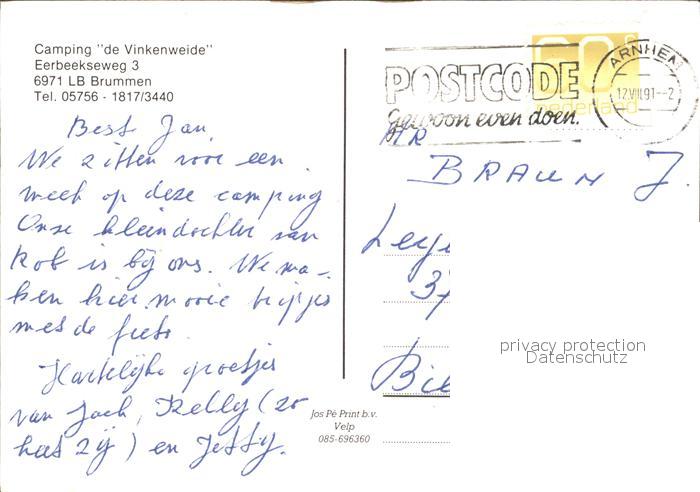 Camping "de Vinkenweide"
Eerbeekseweg 3
6971 LB Brummen
Tel. 05756 - 1817/3440
Best Jan,
We zitten voor een
week op deze camping
Onze kleindochter van
Rob is bij ons. We ma-
ken hier mooie tripjes
met de fiets.
Hartelijke groetjes
van Jack, Kelly (zo
heet zij) en Jetty.
60 c
nederland
POSTCODE
Gewoon even doen.
ARNHEM
12.VIII.91-2
MR
BRAUN J.
37
Bie
privacy protection
Datenschutz
Jos Pé Print b.v.
Velp
085-696360